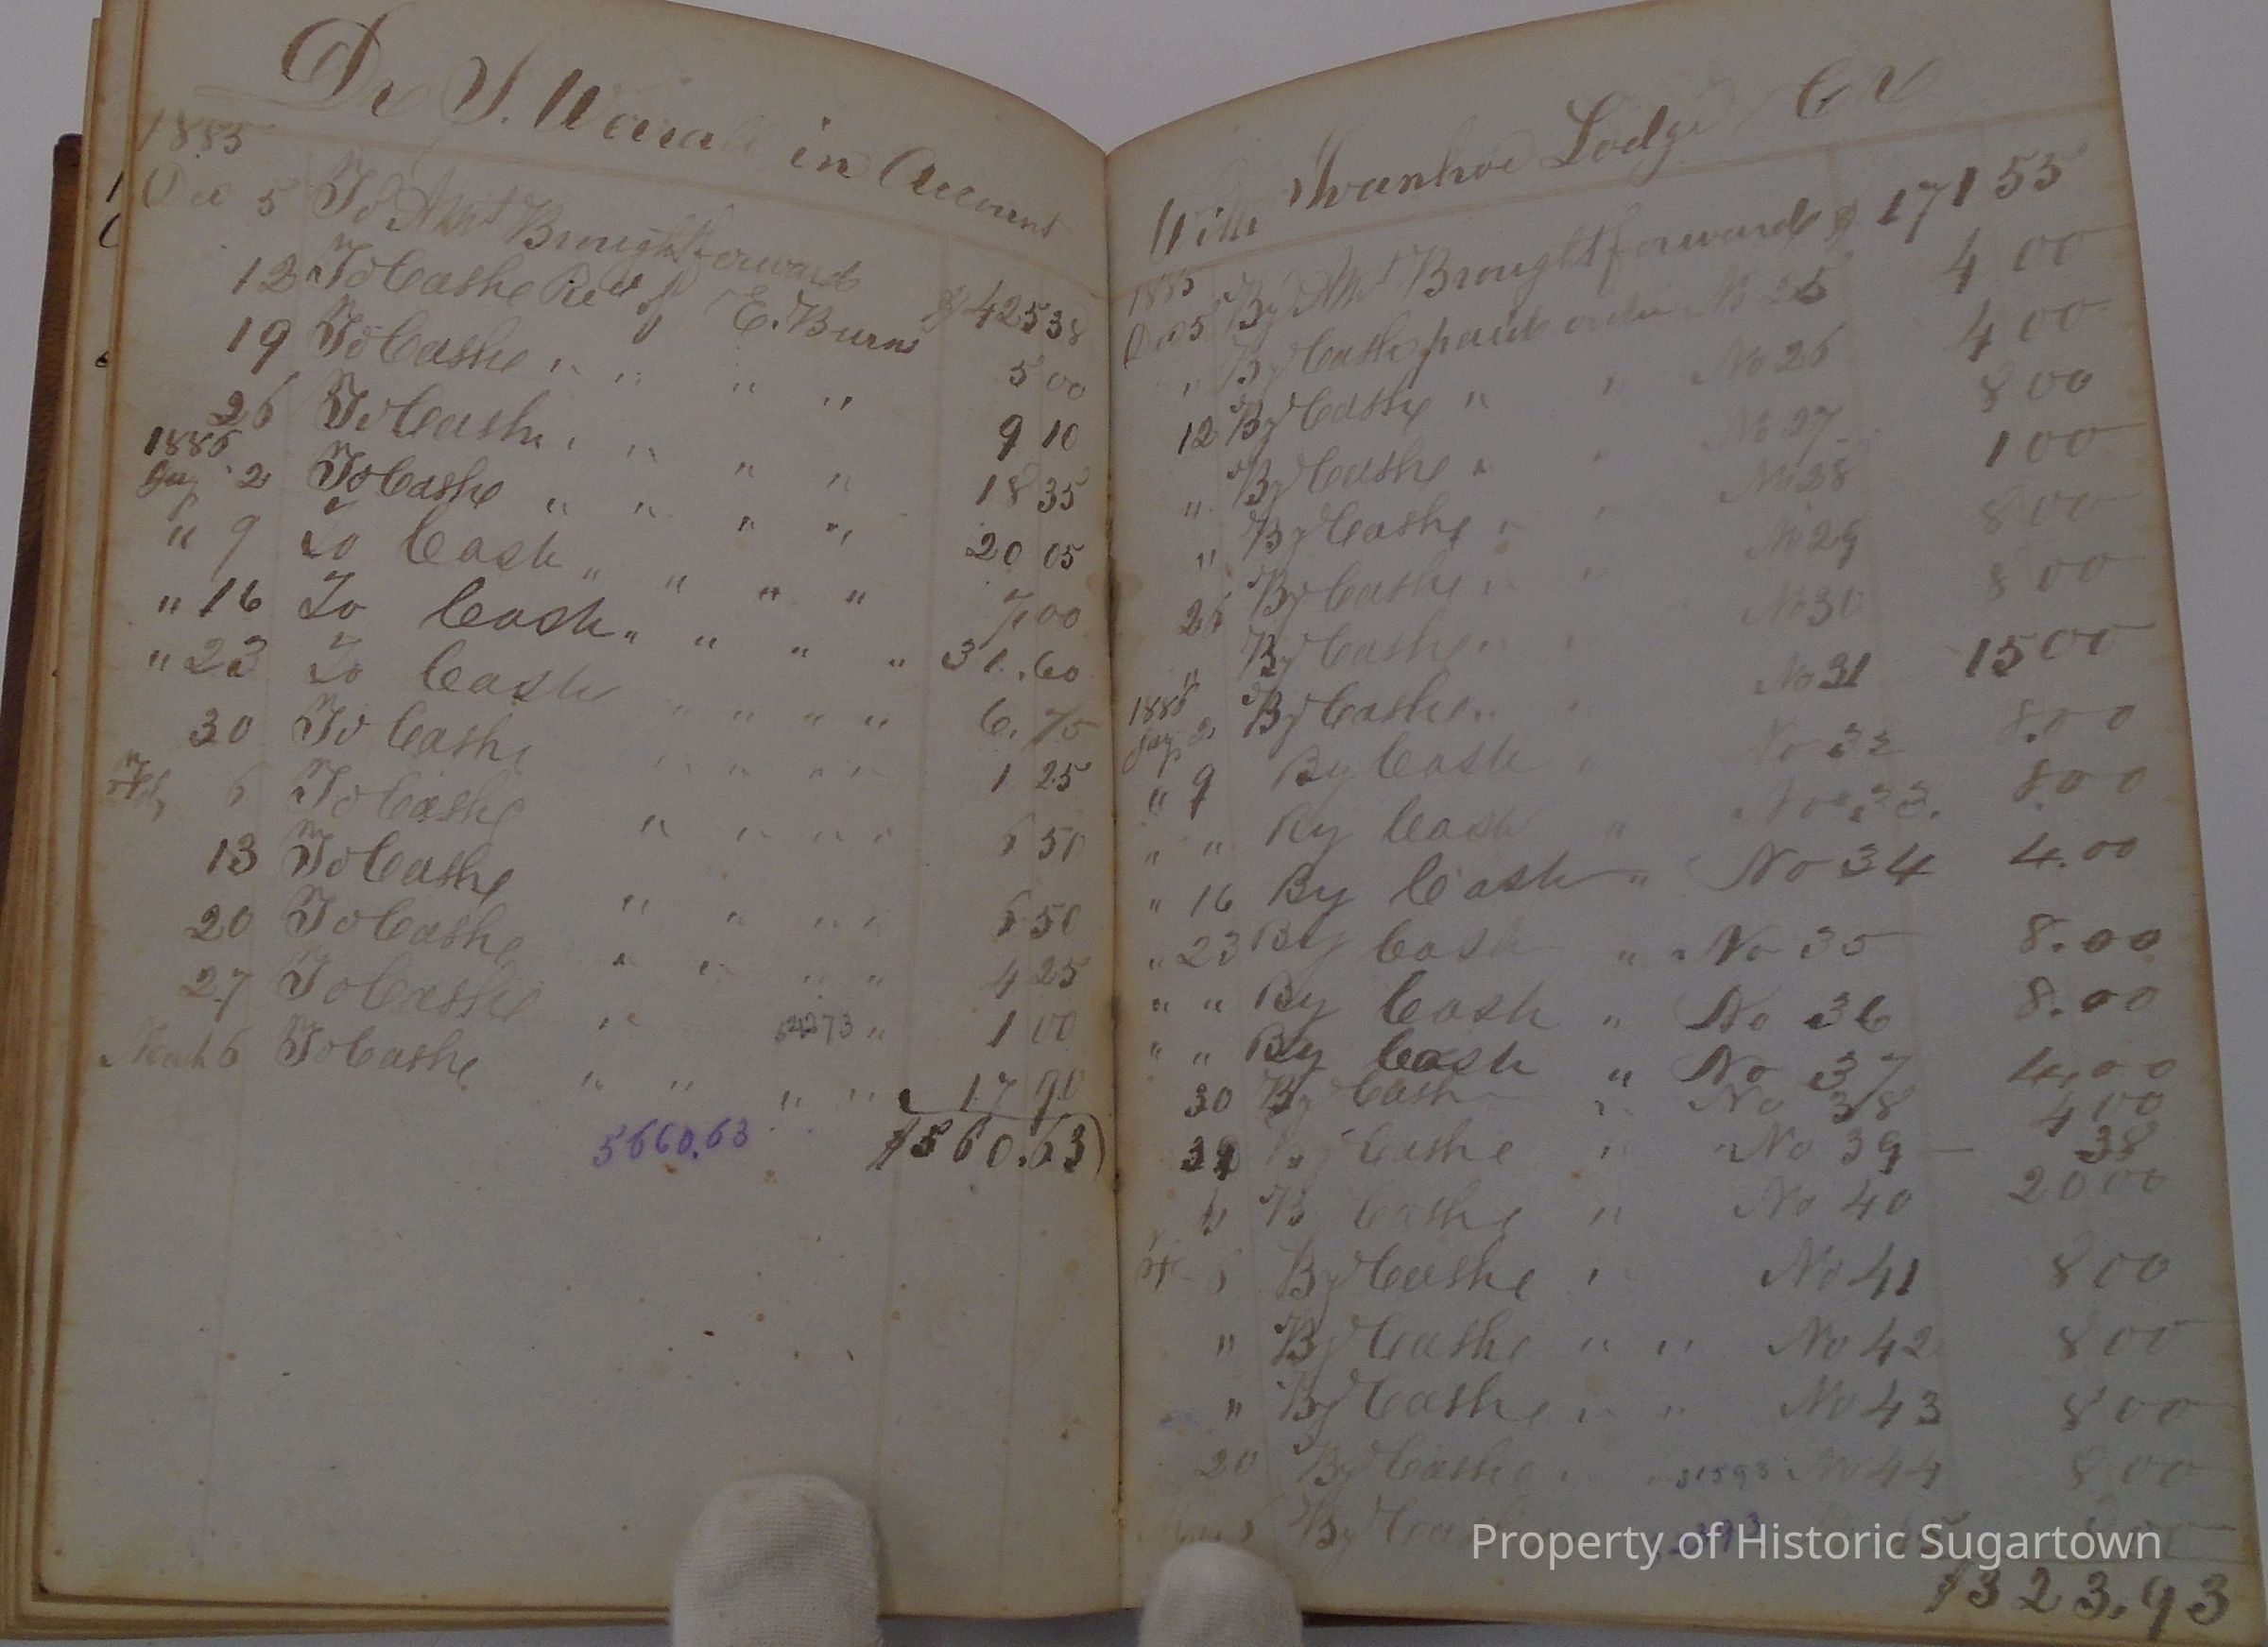 Dr S. Worrall in Account
1885
Dec 5 To Amt Brought forward $425 38
12 To Cashe Recd of E. Burns 5 00
19 To Cashe " " " " 9 10
26 To Cash " " " " 18 35
1886
Jay 2 To Cashe " " " " 20 05
" 9 To Cash " " " " 7,00
" 16 To Cash " " " " 31.60
" 23 To Cash " " " " 6.75
30 To Cashe " " " " 1 25
Feb 6 To Cashe " " " " 6 50
13 To Cashe " " " " 6 50
20 To Cashe " " " " 4 25
27 To Cashe " " 1 00
March 6 To Cashe " " " " 17 90
5660.63 $560.63
With Ivanhoe Lodge Cr
1885
Dec 5 By Amt Brought forward $ 171 55
" By Cash paid order No 25 4 00
12 By Cashe " " No 26 4 00
" By Cashe " " No 27 8 00
" By Cashe " " No 28 1 00
26 By Cashe " " No 29 8 00
" By Cashe " " No 30 8 00
1886
Jay 2 By Cashe " " No 31 15 00
" 9 By Cash " No 32 8.00
" " By Cash " No 33. 8.00
" 16 By Cash " No 34 4.00
" 23 By Cash " No 35 8.00
" " By Cash " No 36 8.00
" " By Cash " No 37 4.00
30 By Cash " No 38 4 00
By Cashe " No 39 38
By Cashe " No 40 20 00
6 By Cashe " No 41 8 00
" By Cashe " " No 42 8 00
" By Cashe " " No 43 8 00
20 By Cashe " 31593 No 44 8 00
By Cash
$323.93
Property of Historic Sugartown